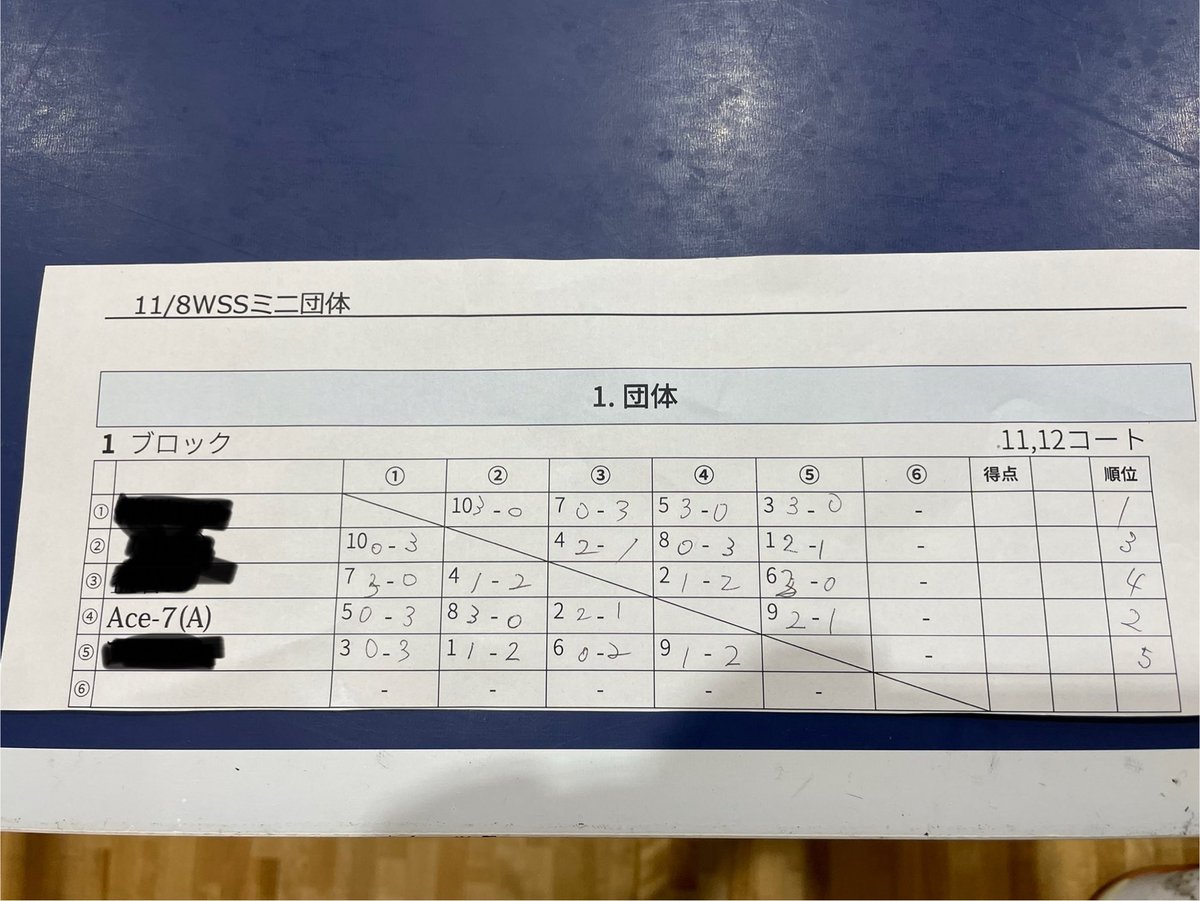 11/8WSSミニ団体
1. 団体
1 ブロック
11,12コート
① ② ③ ④ ⑤ ⑥ 得点 順位
① 10 3-0 7 0-3 5 3-0 3 3-0 - 1
② 10 0-3 4 2-1 8 0-3 1 2-1 - 3
③ 7 3-0 4 1-2 2 1-2 6 -0 - 4
④ Ace-7(A) 5 0-3 8 3-0 2 2-1 9 2-1 - 2
⑤ 3 0-3 1 1-2 6 0-2 9 1-2 - 5
⑥ - - - - -